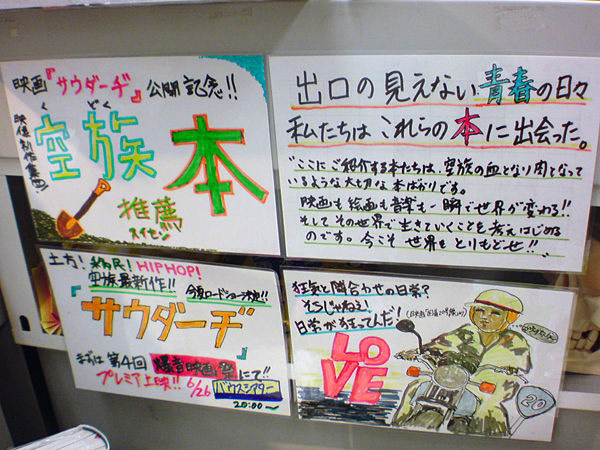 映画『サウダーヂ』公開記念!!
映像制作集団
くぞく
空族本
推薦
スイセン
出口の見えない青春の日々
私たちはこれらの本に出会った。
ここにご紹介する本たちは、空族の血となり肉となって
いるような大切な本ばかりです。
映画も絵画も音楽も一瞬で世界が変わる!!
そしてその世界で生きていくことを考えはじめる
のです。今こそ世界をとりもどせ!!
土方!移民!HIPHOP!
空族最新作!!
今夏ロードショー決定!!
『サウダーヂ』
まずは第4回爆音映画祭にて!!
プレミア上映!!6/26バウスシアター
20:00~
狂気と隣合わせの日常?
ちらじゃねえ!
日常が狂ってんだ!
LOVE
20